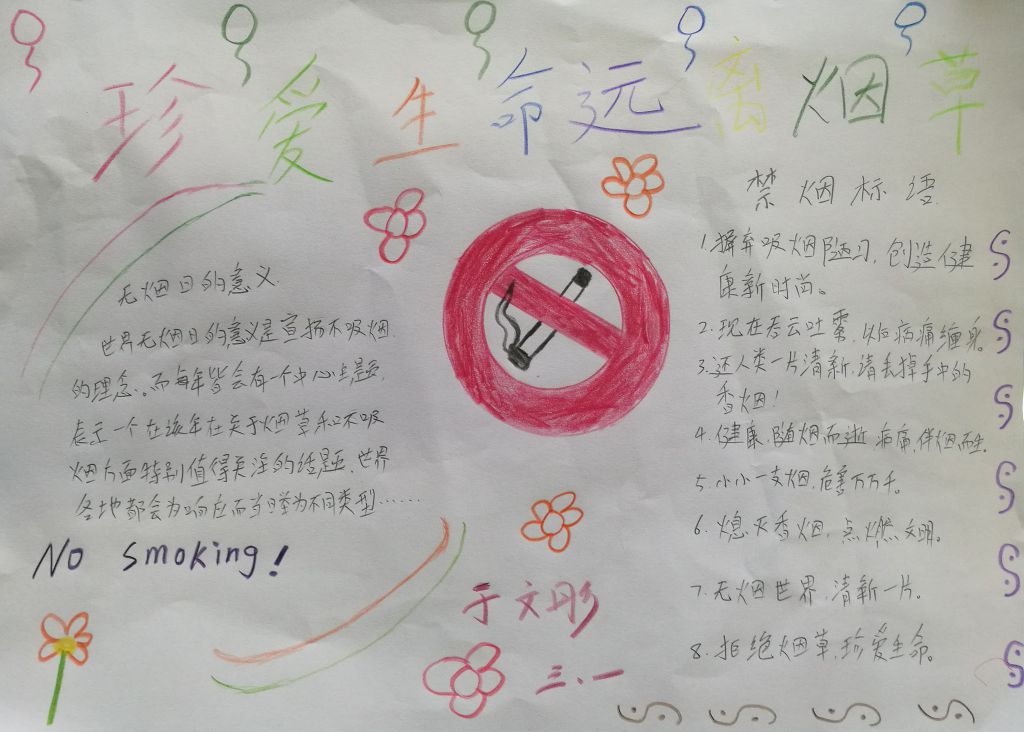 珍爱生命远离烟草
无烟日的意义
世界无烟日的意义是宣扬不吸烟
的理念。而每年皆会有一个中心主题,
表示一个在该年在关于烟草和不吸
烟方面特别值得关注的话题、世界
各地都会为响应而当日举为不同类型……
No smoking!
禁烟标语
1.摒弃吸烟陋习,创造健
康新时尚。
2.现在吞云吐雾,以后病痛缠身。
3.还人类一片清新,请丢掉手中的
香烟!
4.健康,随烟而逝,病痛,伴烟而生
5.小小一支烟,危害万万千。
6.熄灭香烟,点燃文明。
7.无烟世界,清新一片。
8.拒绝烟草,珍爱生命。
于文彤
三、一